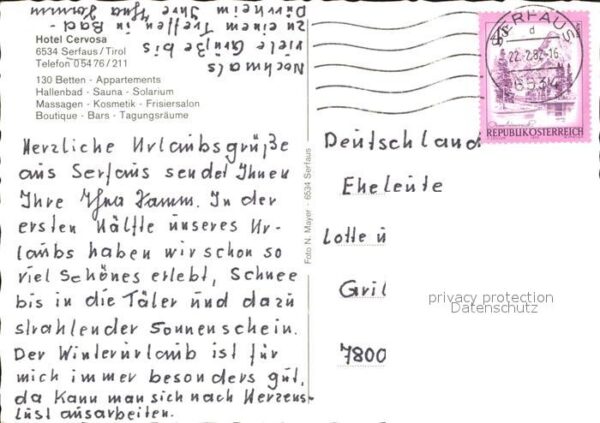 Hotel Cervosa
6534 Serfaus / Tirol
Telefon 05476 / 211
130 Betten - Appartements
Hallenbad - Sauna - Solarium
Massagen - Kosmetik - Frisiersalon
Boutique - Bars - Tagungsräume
Herzliche Urlaubsgrüße
aus Serfaus sendet Ihnen
Ihre Hamm. In der
ersten Hälfte unseres Ur-
laubs haben wir schon so
viel Schönes erlebt, Schnee
bis in die Täler und dazu
strahlender Sonnenschein.
Der Winterurlaub ist für
mich immer besonders gut,
da kann man sich nach Herzens-
lust ausarbeiten.
Nochmals
viele Grüße bis
zu einem Treffen in Bad-
Dürrheim Ihre
Foto N. Mayer - 6534 Serfaus
SERFAUS
d
22.-2.82-16
6534
REPUBLIK ÖSTERREICH
Deutschland
Eheleute
Lotte u
Gril
7800
privacy protection
Datenschutz